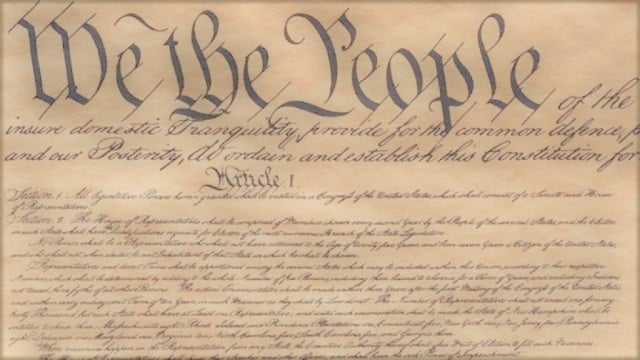 We the People of the
insure domestic Tranquility, provide for the common defence,
and our Posterity, do ordain and establish this Constitution for
Article I
Section 1. All legislative Powers herein granted shall be vested in a Congress of the United States, which shall consist of a Senate and House
of Representatives.
Section 2. The House of Representatives shall be composed of Members chosen every second Year by the People of the several States, and the Electors
in each State shall have Qualifications requisite for Electors of the most numerous Branch of the State Legislature.
No Person shall be a Representative who shall not have attained to the Age of twenty five Years, and been seven Years a Citizen of the United States,
and who shall not, when elected, be an Inhabitant of that State in which he shall be chosen.
Representatives and direct Taxes shall be apportioned among the several States which may be included within this Union, according to their respective
Numbers, which shall be determined by adding to the whole Number of free Persons, including those bound to Service for a Term of Years, and excluding Indians
not taxed, three fifths of all other Persons. The actual Enumeration shall be made within three Years after the first Meeting of the Congress of the United States,
and within every subsequent Term of ten Years, in such Manner as they shall by Law direct. The Number of Representatives shall not exceed one for every
thirty Thousand, but each State shall have at Least one Representative; and until such enumeration shall be made, the State of New Hampshire shall be
entitled to chuse three, Massachusetts eight, Rhode Island and Providence Plantations one, Connecticut five, New York six, New Jersey four, Pennsylvania
eight, Delaware one, Maryland six, Virginia ten, North Carolina five, South Carolina five, and Georgia three.
When vacancies happen in the Representation from any State, the Executive Authority thereof shall issue Writs of Election to fill such Vacancies.
The House of Representatives shall chuse their Speaker and other Officers; and shall have the sole Power of Impeachment.